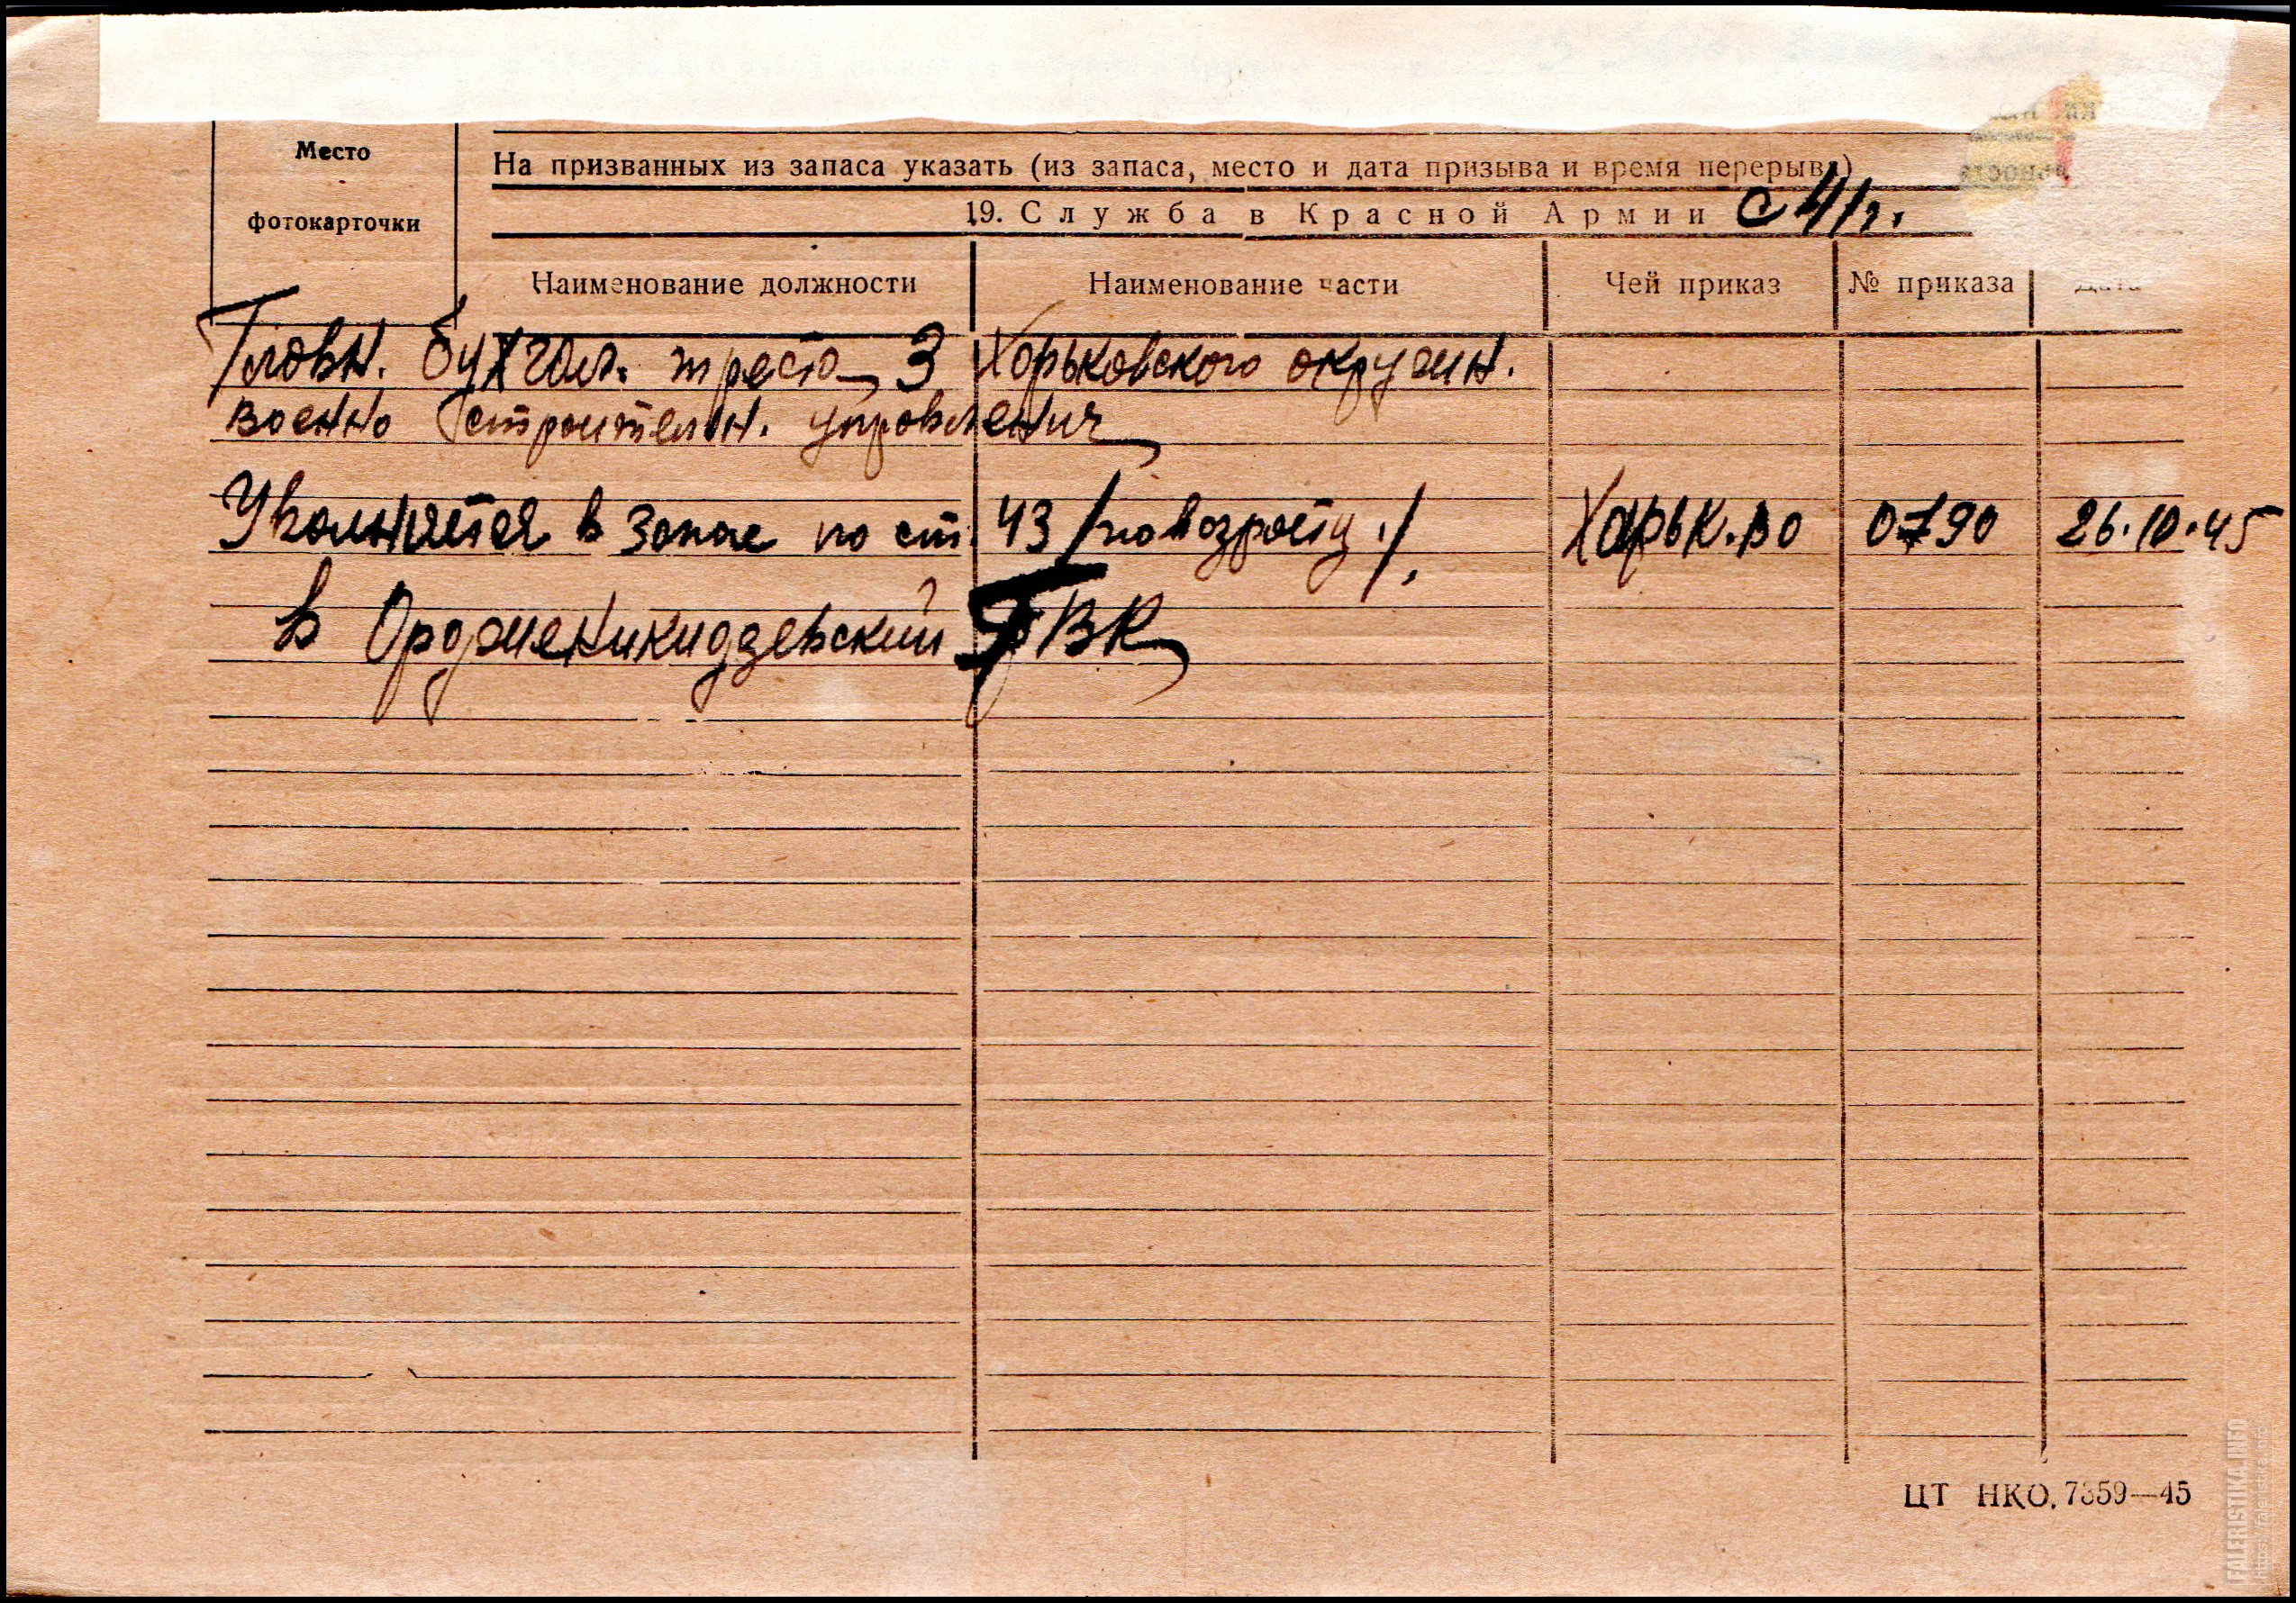 Место
фотокарточки
На призванных из запаса указать (из запаса, место и дата призыва и время перерыва)
19. Служба в Красной Армии с 41 г.
Наименование должности Наименование части Чей приказ № приказа Дата
Главн. бухгал. треста 3 Харьковского окружн.
военно строительн. управления
Увольняется в запас по ст. 43 /по возрасту./. Харьк. ВО 0790 26.10.45
в Орджоникидзевский ВК
ЦТ НКО. 7359—45
FALERISTIKA.INFO
https://faleristika.info